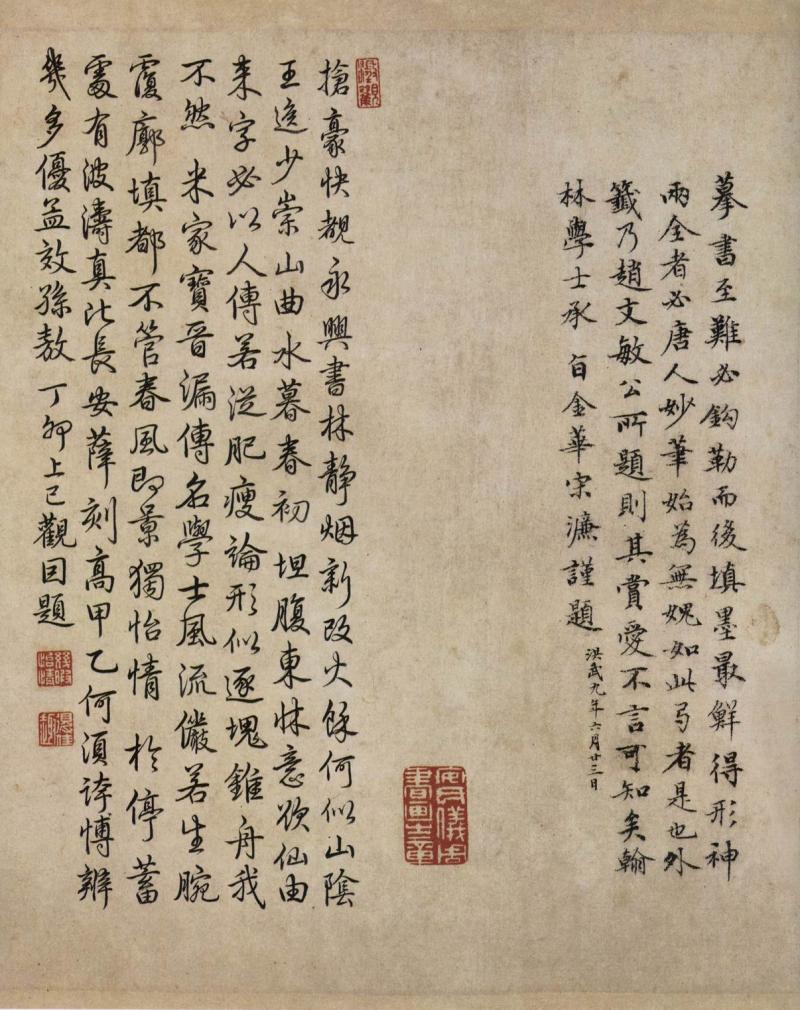 摹書至難必鈎勒而後填墨最鮮得形神
兩全者必唐人妙筆始為無媿如此弓者是也外
籤乃趙文敏公所題則其賞愛不言可知矣翰
林學士承旨金華宋濂謹題
洪武九年六月廿三日
搶豪快覩永興書林靜烟新改火餘何似山陰
王逸少崇山曲水暮春初坦腹東牀意欲仙由
来字必以人傳若從肥瘦論形似逐塊錐舟我
不然米家寶晉漏傳名學士風流儼若生腕
覆廓填都不管春風即景獨怡情於停蓄
處有波濤真比長安薛刻高甲乙何須誇博辨
幾多優孟效孫敖丁卯上巳觀因題